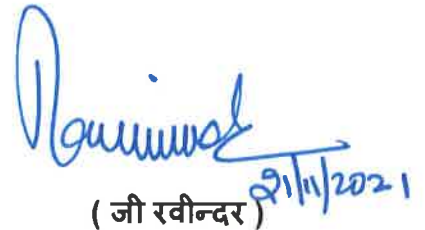 21/11/2021
( जी रवीन्दर )